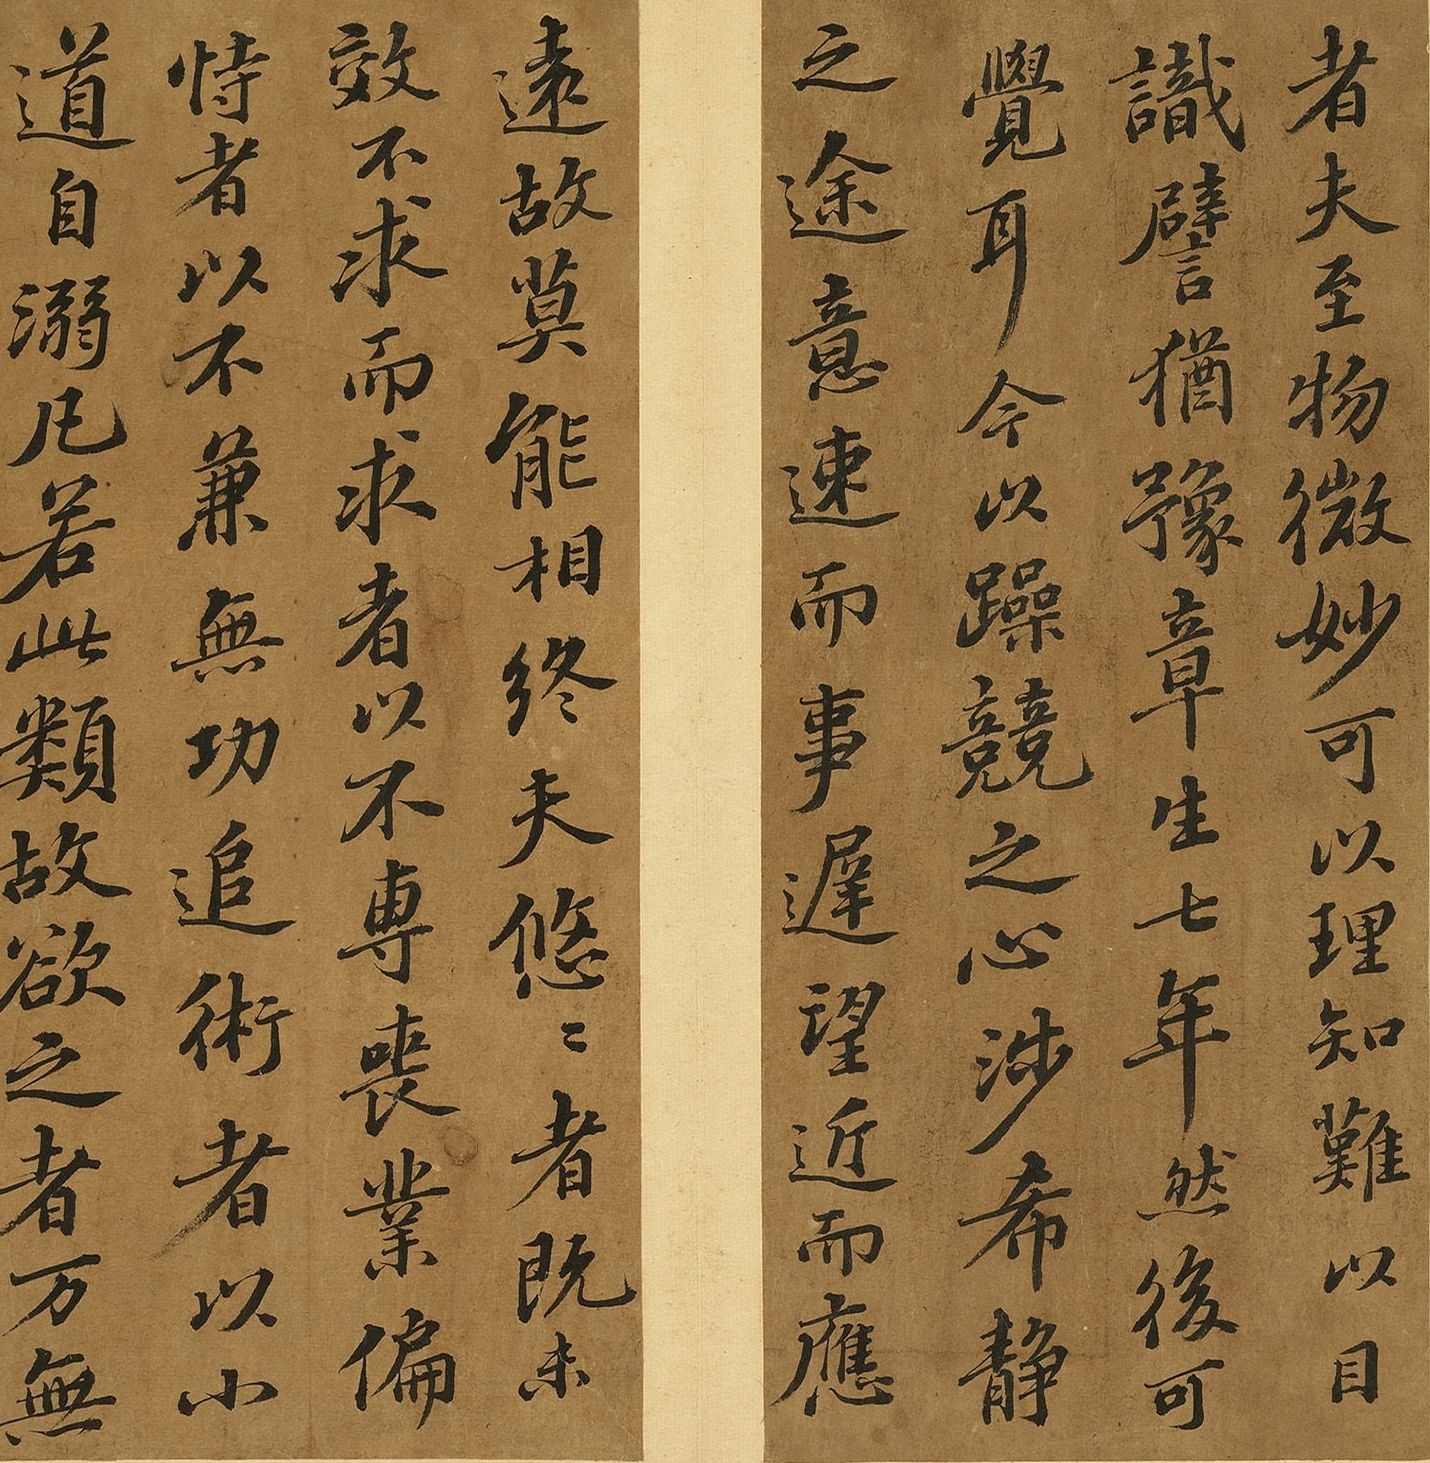 者夫至物微妙可以理知難以目
識譬猶豫章生七年然後可
覺耳今以躁競之心涉希静
之途意速而事遲望近而應
遠故莫能相終夫悠〻者既未
效不求而求者以不専喪業偏
恃者以不兼無功追術者以小
道自溺凡若此類故欲之者万無